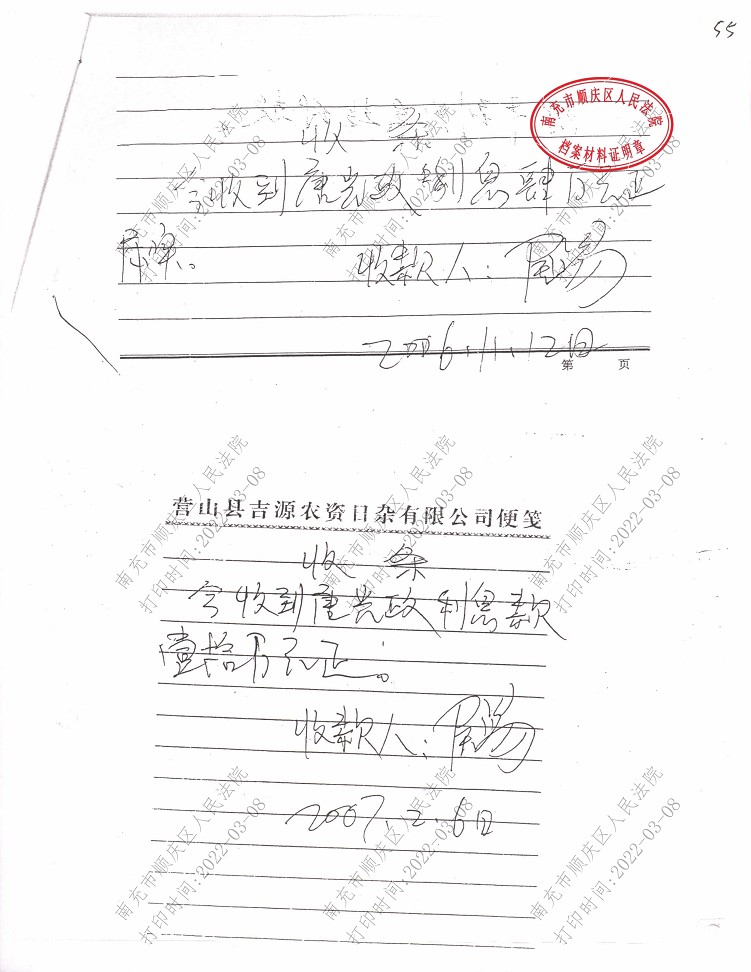 55
南充市顺庆区人民法院
档案材料证明章
收 条
今收到唐兴政利息肆万元正
收款人:周勇
2006.11.12日
第 页
营山县吉源农资日杂有限公司便笺
收 条
今收到唐兴政利息款
壹拾万元正。
收款人:周勇
2007.2.6日
南充市顺庆区人民法院
打印时间:2022-03-08
南充市顺庆区人民法院
打印时间:2022-03-08
南充市顺庆区人民法院
打印时间:2022-03-08
南充市顺庆区人民法院
打印时间:2022-03-08
南充市顺庆区人民法院
打印时间:2022-03-08
南充市顺庆区人民法院
打印时间:2022-03-08
南充市顺庆区人民法院
打印时间:2022-03-08
南充市顺庆区人民法院
打印时间:2022-03-08
南充市顺庆区人民法院
打印时间:2022-03-08